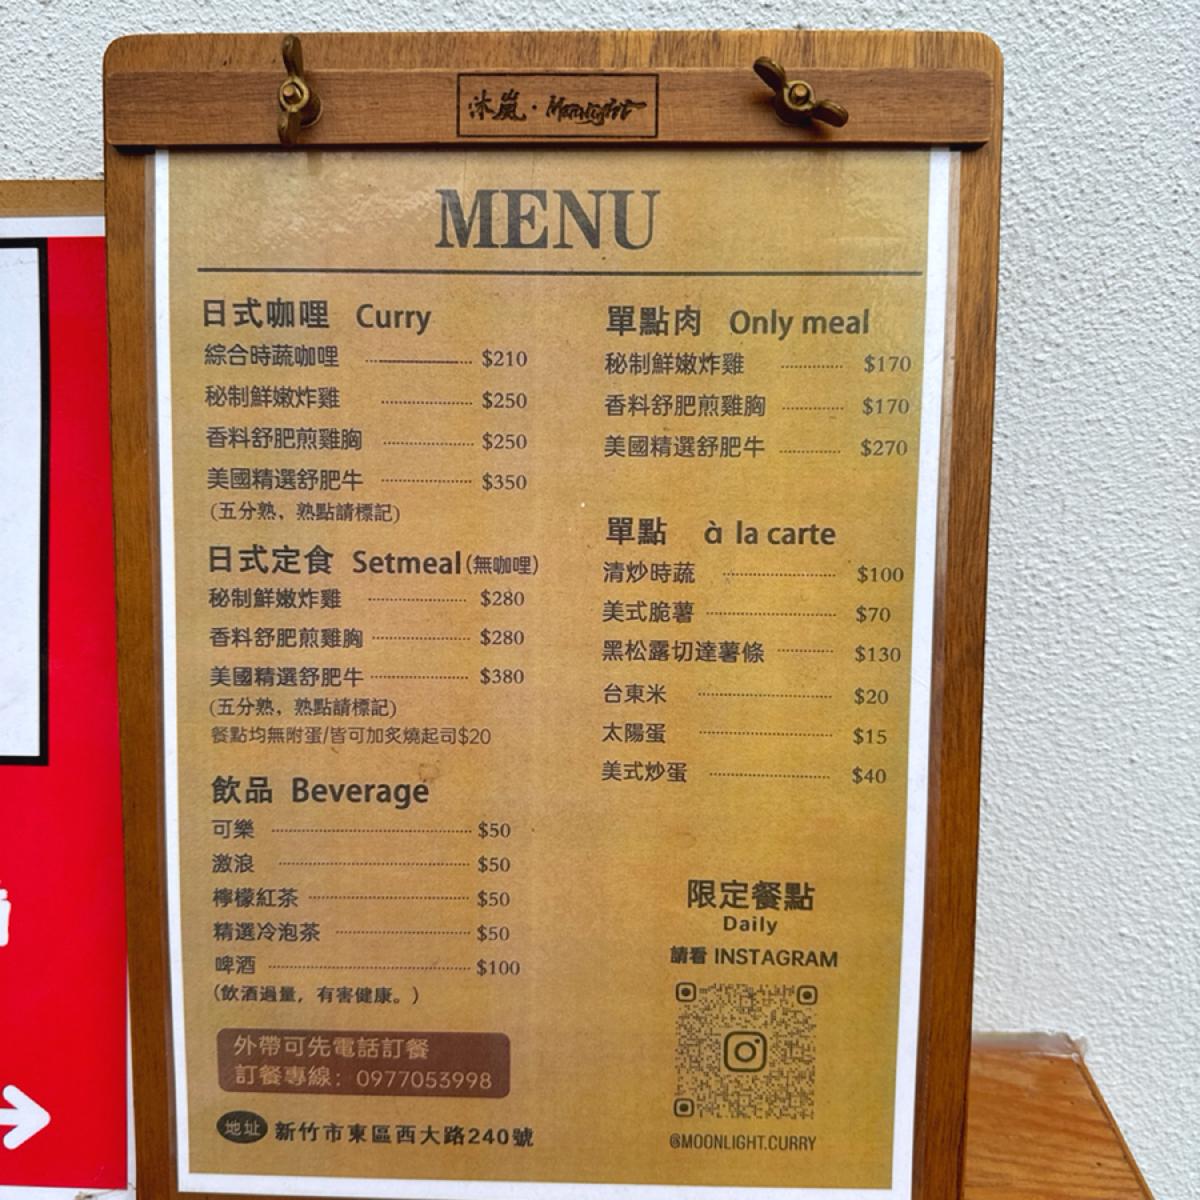 沐嵐·Moonlight
MENU
日式咖哩 Curry
綜合時蔬咖哩 $210
秘制鮮嫩炸雞 $250
香料舒肥煎雞胸 $250
美國精選舒肥牛 $350
(五分熟，熟點請標記)
日式定食 Setmeal(無咖哩)
秘制鮮嫩炸雞 $280
香料舒肥煎雞胸 $280
美國精選舒肥牛 $380
(五分熟，熟點請標記)
餐點均無附蛋/皆可加炙燒起司$20
飲品 Beverage
可樂 $50
激浪 $50
檸檬紅茶 $50
精選冷泡茶 $50
啤酒 $100
(飲酒過量，有害健康。)
外帶可先電話訂餐
訂餐專線：0977053998
地址 新竹市東區西大路240號
單點肉 Only meal
秘制鮮嫩炸雞 $170
香料舒肥煎雞胸 $170
美國精選舒肥牛 $270
單點 à la carte
清炒時蔬 $100
美式脆薯 $70
黑松露切達薯條 $130
台東米 $20
太陽蛋 $15
美式炒蛋 $40
限定餐點
Daily
請看 INSTAGRAM
@MOONLIGHT.CURRY